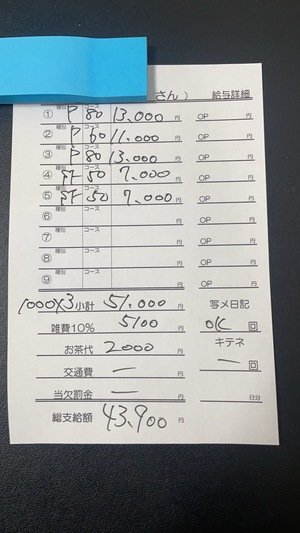 さん） 給与詳細
① 種別 P コース 80 13,000 円 OP 円
② 種別 P コース 60 11,000 円 OP 円
③ 種別 P コース 80 13,000 円 OP 円
④ 種別 コース 50 7,000 円 OP 円
⑤ 種別 コース 50 7,000 円 OP 円
⑥ 種別 コース 円 OP 円
⑦ 種別 コース 円 OP 円
⑧ 種別 コース 円 OP 円
⑨ 種別 コース 円 OP 円
1000×3 小計 51,000 円 写メ日記
雑費10% 5100 円 OK 回
お茶代 2000 円 キテネ
交通費 ー 円 ー 回
当欠罰金 ー 円 日分
総支給額 43,900 円